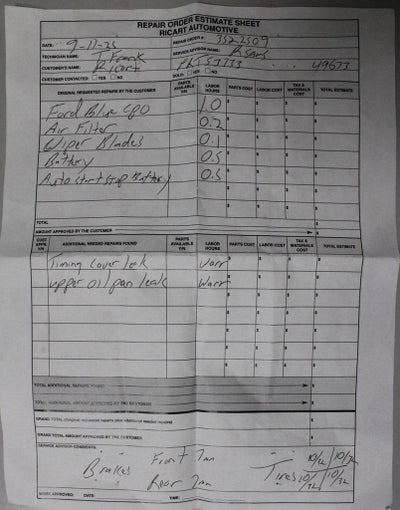 REPAIR ORDER ESTIMATE SHEET
RICART AUTOMOTIVE
DATE: 9-11-25 REPAIR ORDER #: 3522507
TECHNICIAN NAME: R Frank SERVICE ADVISOR NAME: B Sears
CUSTOMER'S NAME: Ricart PK153733 49673
CUSTOMER CONTACTED: YES NO SOLD: YES NO
ORIGINAL REQUESTED REPAIRS BY THE CUSTOMER PARTS AVAILABLE Y/N LABOR HOURS PARTS COST LABOR COST TAX & MATERIALS COST TOTAL ESTIMATE
Ford Blue CPO 1.0 $ $ $ $
Air Filter 0.2 $ $ $ $
Wiper Blades 0.1 $ $ $ $
Battery 0.5 $ $ $ $
Auto Start Stop Battery 0.5 $ $ $ $
$ $ $ $
$ $ $ $
TOTAL $
AMOUNT APPROVED BY THE CUSTOMER $
CUST. APPR. Y/N ADDITIONAL NEEDED REPAIRS FOUND PARTS AVAILABLE Y/N LABOR HOURS PARTS COST LABOR COST TAX & MATERIALS COST TOTAL ESTIMATE
Timing cover leak Warr $ $ $ $
upper oil pan leak Warr $ $ $ $
$ $ $ $
$ $ $ $
$ $ $ $
$ $ $ $
$ $ $ $
TOTAL ADDITIONAL REPAIRS FOUND $
TOTAL ADDITIONAL AMOUNT APPROVED BY THE CUSTOMER $
GRAND TOTAL (original requested repairs plus additional needed repairs) $
GRAND TOTAL AMOUNT APPROVED BY THE CUSTOMER $
SERVICE ADVISOR COMMENTS:
Brakes Front 7mm Tires 10/32 10/32
Rear 7mm 10/32 10/32
WORK APPROVED: DATE: TIME: